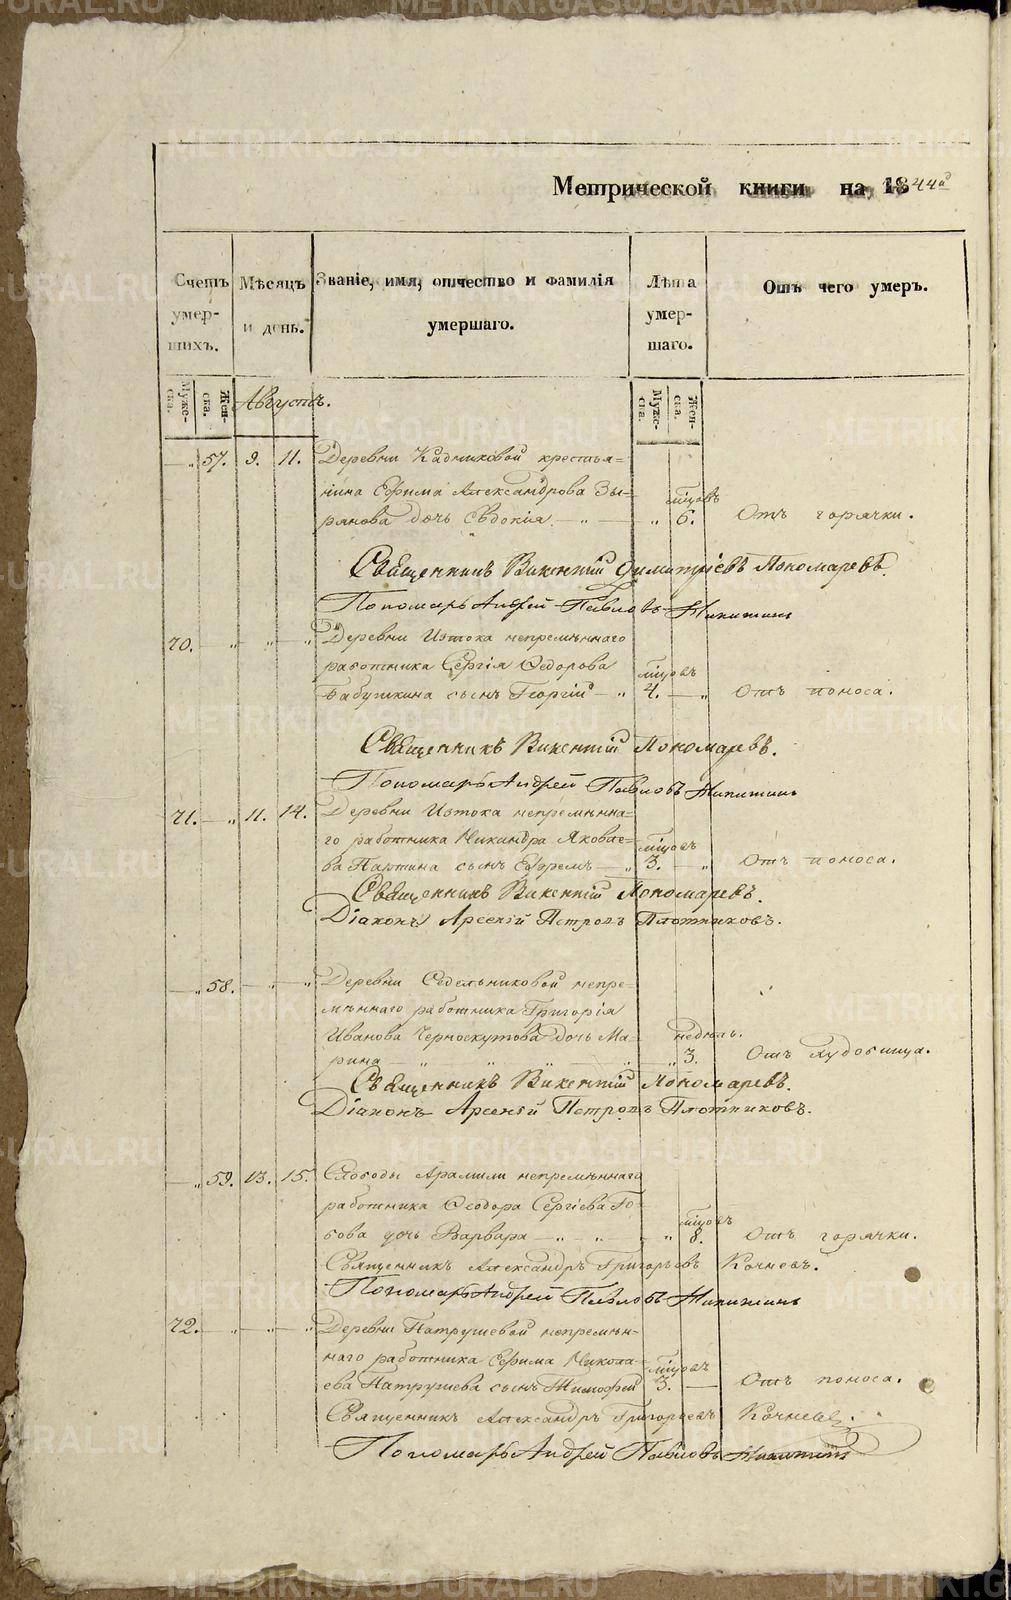 Метрической книги на 1844й
Счетъ умер- шихъ.
Мѣсяцъ и день.
Званіе, имя, отчество и фамилія умершаго.
Лѣта умер- шаго.
Отъ чего умеръ.
Муже- ска. Жен- ска. Августъ. Муже- ска. Жен- ска.
— „ 57. 9. 11. Деревни Кадниковой крестья=
нина Ефима Александрова Зы- мѣсцовъ
рянова дочь Евдокія. — „ — „ 6. Отъ горячки.
Священникъ Викентій Димитріевъ Пономаревъ.
Пономарь Андрей Павловъ Никитинъ
70. — „ — „ Деревни Изтока непремѣннаго
работника Сергія Ѳедорова мѣсцовъ
Бабушкина сынъ Георгій — „ 4. — „ Отъ поноса.
Священникъ Викентій Пономаревъ.
Пономарь Андрей Павловъ Никитинъ
71. — „ 11. 14. Деревни Изтока непремѣнна-
го работника Никандра Яковле= мѣсцовъ
ва сынъ Ефремъ — „ 3. — „ Отъ поноса.
Священникъ Викентій Пономаревъ.
Діаконъ Арсеній Петровъ Плотниковъ.
— „ 58. — „ — „ Деревни Седельниковой непре=
мѣннаго работника Григорія
Иванова Черноскутова дочь Ма- недѣль.
рина — „ — „ 3. Отъ худобища.
Священникъ Викентій Пономаревъ.
Діаконъ Арсеній Петровъ Плотниковъ.
— „ 59. 13. 15. Слободы Арамили непремѣннаго
работника Ѳеодора Сергіева мѣсцовъ
дочь Варвара — „ — „ — „ 8. Отъ горячки.
Священникъ Александръ Григорьевъ Кочневъ.
Пономарь Андрей Павловъ Никитинъ
72. — „ — „ Деревни Патрушевой непремѣн-
наго работника Ефима Никола= мѣсцовъ
ева Патрушева сынъ Тимофей 3. — Отъ поноса.
Священникъ Александръ Григорьевъ Кочневъ.
Пономарь Андрей Павловъ Никитинъ
METRIKI.GASO-URAL.RU